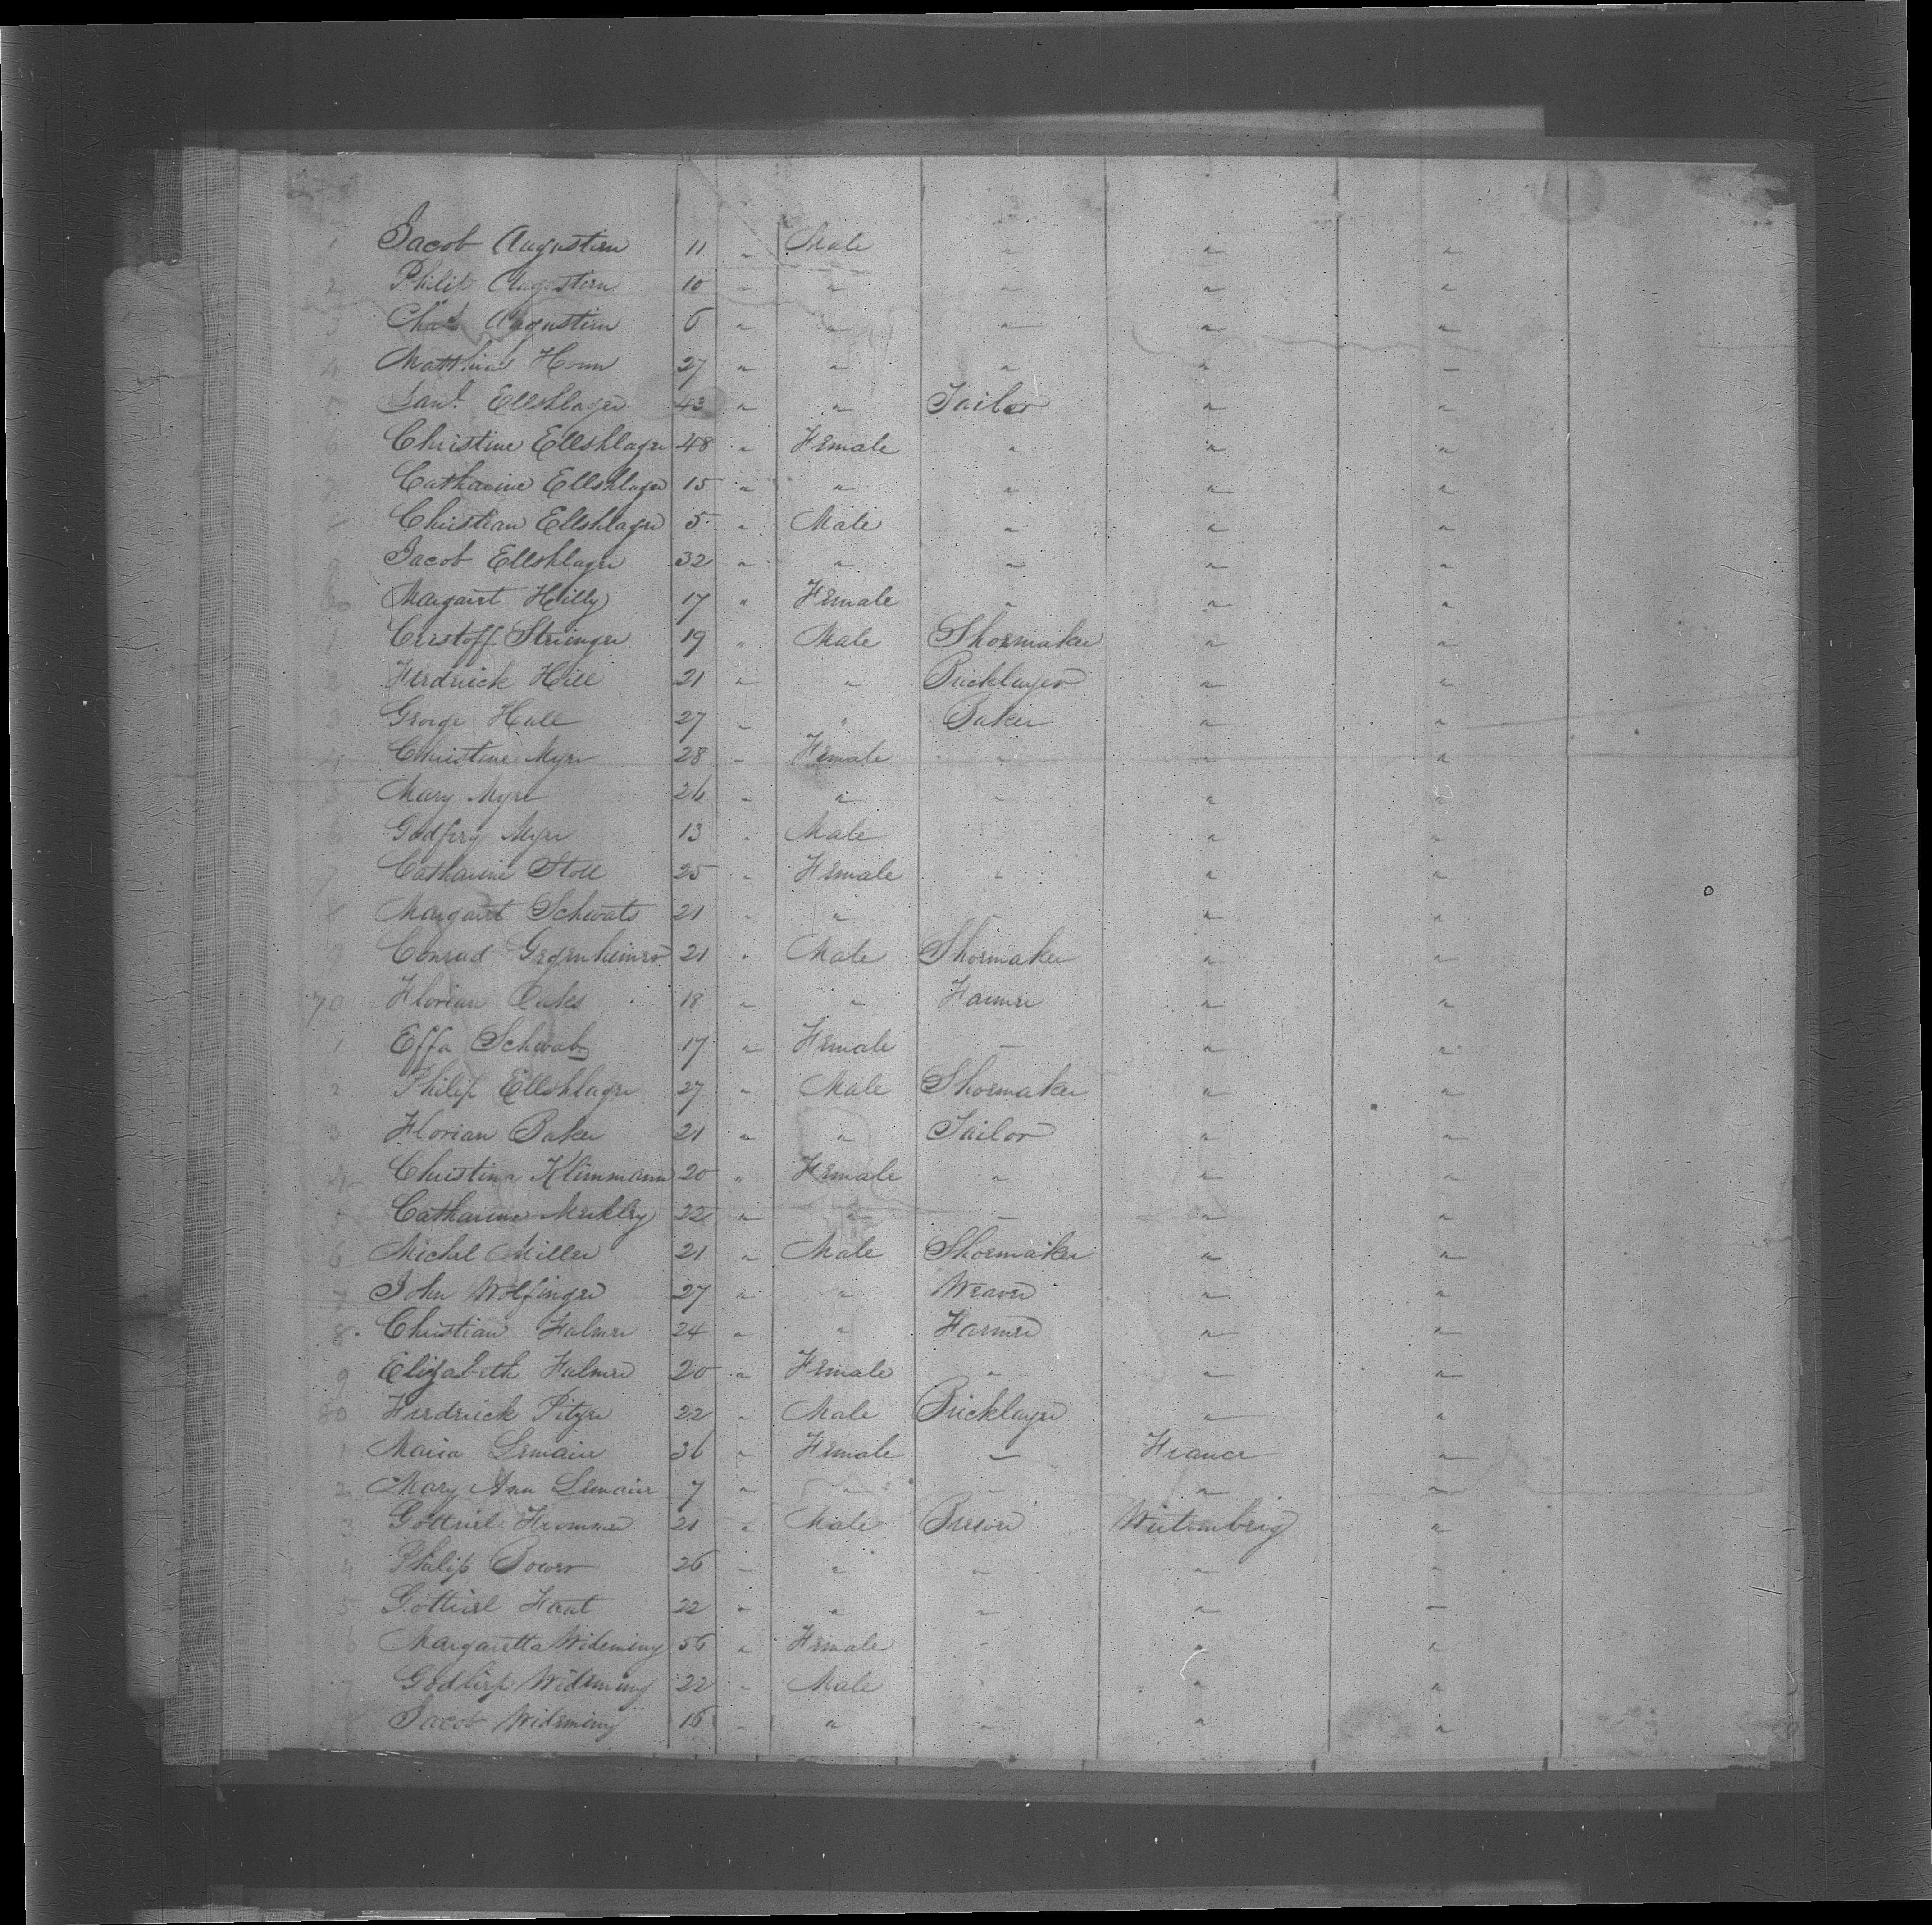 1 Jacob Augustien 11 " Male " " "
2 Philip Augustien 10 " " " " "
3 Chas Augustien 6 " " " " "
4 Matthias Honn 27 " " " " "
Ellshlager 43 " " Tailor " "
6 Christine Ellshlager 48 " Female " " "
7 Catharine Ellshlager 15 " " " " "
8 Christian Ellshlager 5 " Male " " "
9 Jacob Ellshlager 32 " " " " "
60 Margaret Hilly 17 " Female " " "
1 Cristoff Stringer 19 " Male Shoemaker " "
2 Ferdrick Hill 21 " " Bricklayer " "
3 George Hall 27 " " Baker " "
4 Christine Myer 28 " Female " " "
5 Mary Myer 26 " " " " "
6 Godfrey Myer 13 " Male " " "
7 Catharine Stoll 25 " Female " " "
8 Margaret Schwats 21 " " " " "
9 Conrad Gegenheimer 21 " Male Shoemaker " "
70 Florian 18 " " Farmer " "
1 Effa Schwab 17 " Female " " "
2 Philip Ellshlager 27 " Male Shoemaker " "
3 Florian Baker 21 " " Tailor " "
4 Christina Klimmann 20 " Female " " "
5 Catharine Merkley 22 " " " " "
6 Michel Miller 21 " Male Shoemaker " "
7 John Wolfinger 27 " " Weaver " "
8 Christian Falmer 24 " " Farmer " "
9 Elizabeth Falmer 20 " Female " " "
80 Ferdrick Pityer 22 " Male Bricklayer " "
1 Maria Lemaire 36 " Female " France "
2 Mary Ann Lemaire 7 " " " " "
3 Gottriel Frommer 21 " Male Wirtemberg "
4 Philip Bower 26 " " " " "
5 Gottriel Faut 22 " " " " "
6 Margaretta Wideming 56 " Female " " "
7 Godliep Wideming 22 " Male " " "
8 Jacob Wideming 16 " " " " "